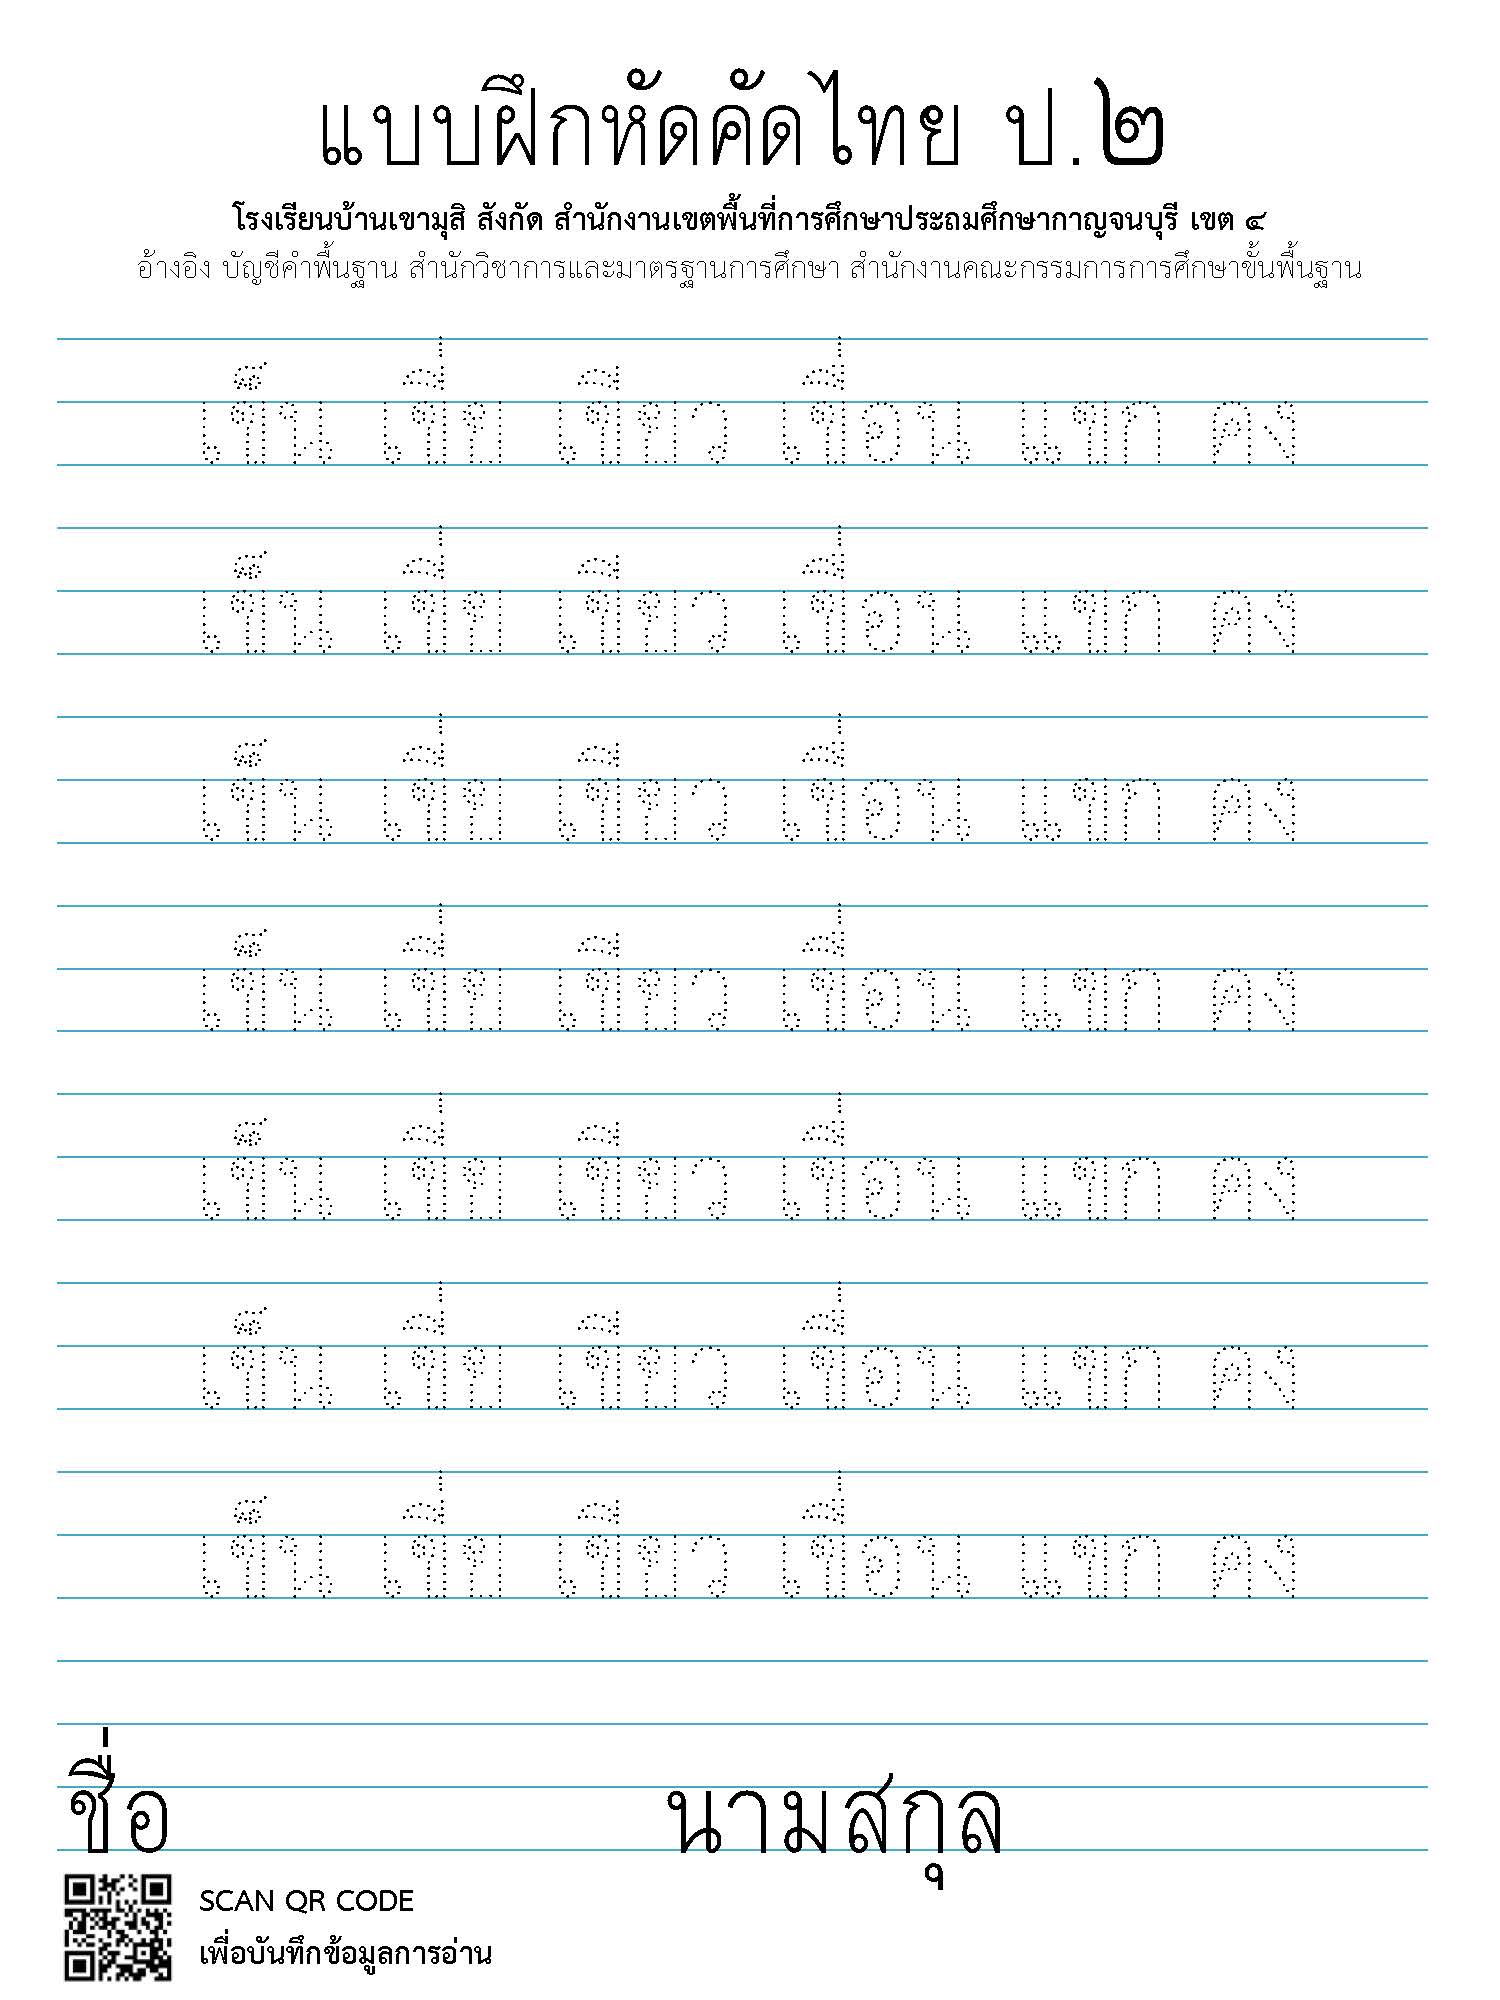 แบบฝึกหัดคัดไทย ป.๒
โรงเรียนบ้านเขามุสิ สังกัด สำนักงานเขตพื้นที่การศึกษาประถมศึกษากาญจนบุรี เขต ๔
อ้างอิง บัญชีคำพื้นฐาน สำนักวิชาการและมาตรฐานการศึกษา สำนักงานคณะกรรมการการศึกษาขั้นพื้นฐาน
เข็น เขี่ย เขียว เขื่อน แขก คง
เข็น เขี่ย เขียว เขื่อน แขก คง
เข็น เขี่ย เขียว เขื่อน แขก คง
เข็น เขี่ย เขียว เขื่อน แขก คง
เข็น เขี่ย เขียว เขื่อน แขก คง
เข็น เขี่ย เขียว เขื่อน แขก คง
เข็น เขี่ย เขียว เขื่อน แขก คง
ชื่อ นามสกุล
SCAN QR CODE
เพื่อบันทึกข้อมูลการอ่าน